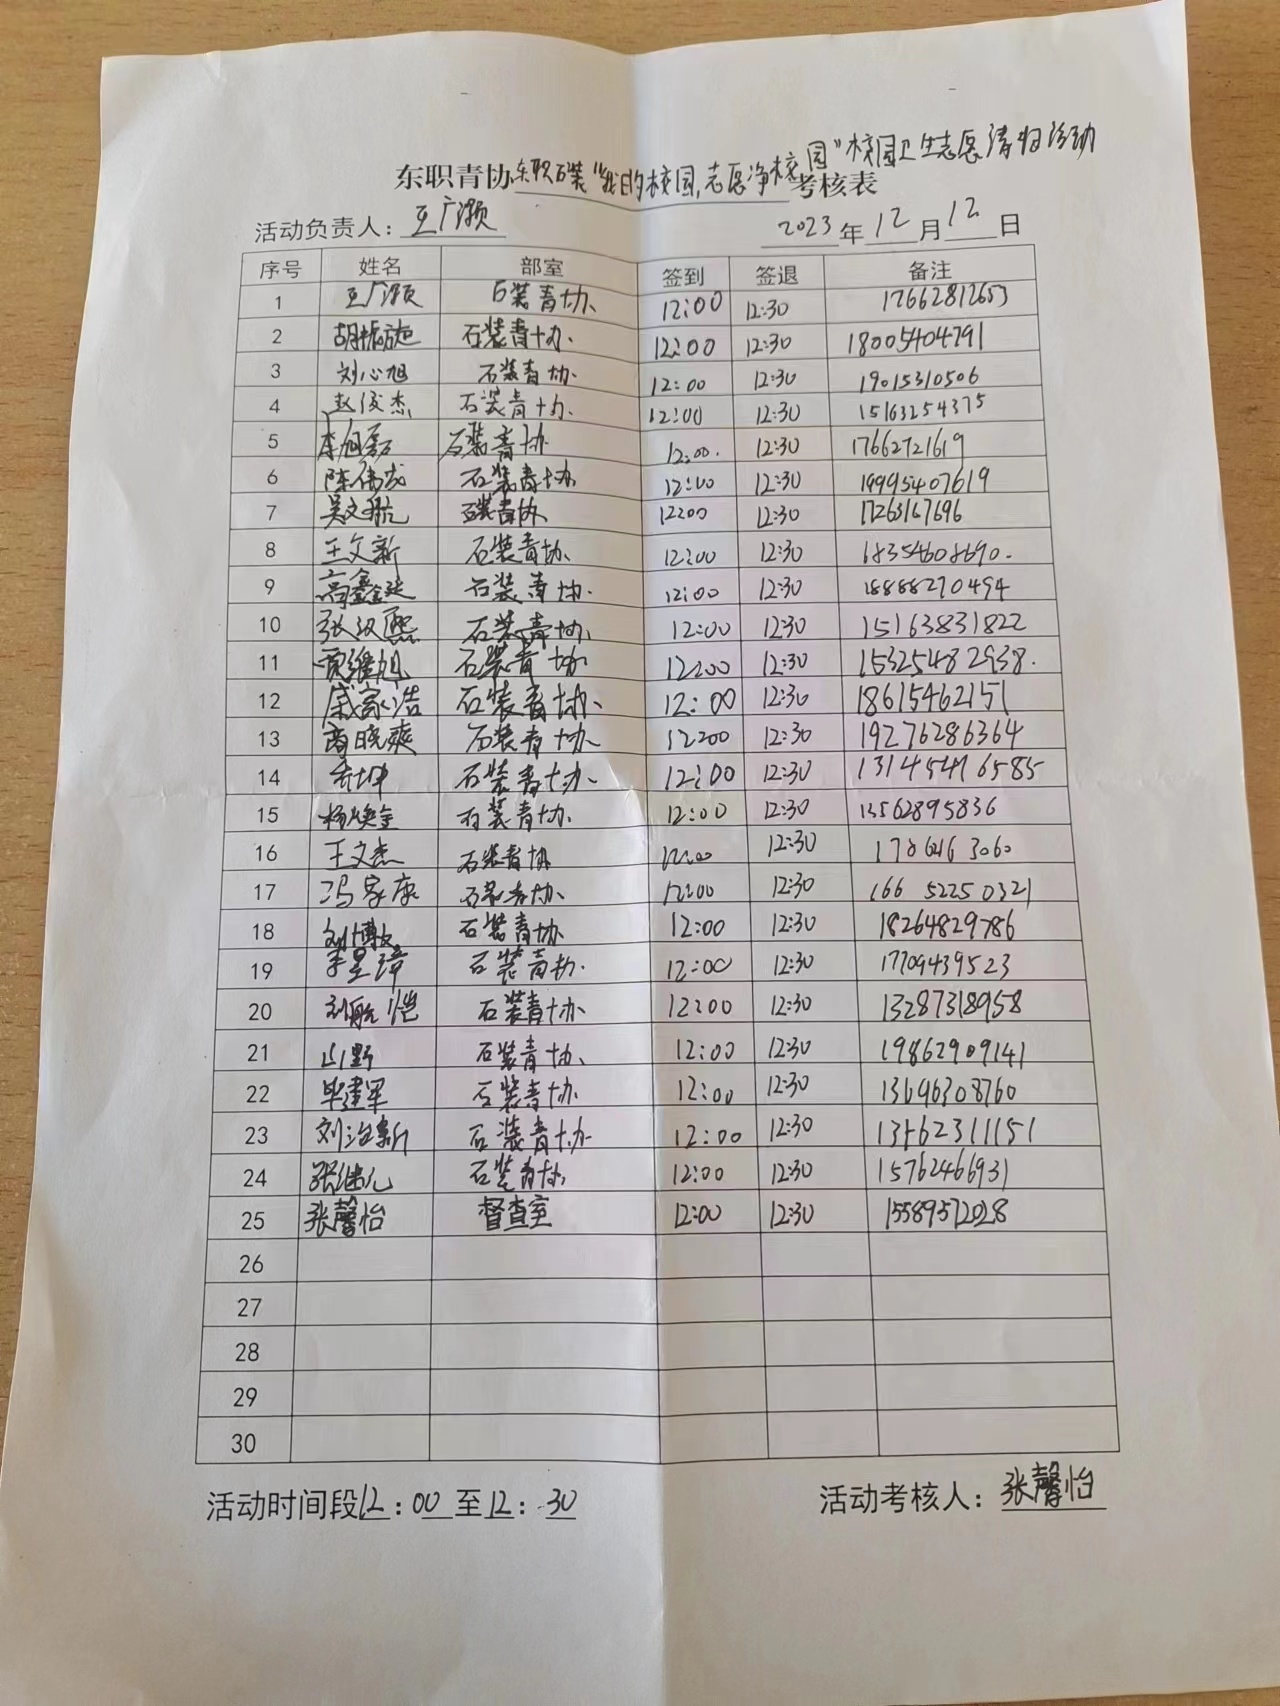 园"校园卫生志愿清扫活动
东职青协东职石装"我的校园,志愿净校考核表
活动负责人: 王广灏 2023年12月12日
序号 姓名 部室 签到 签退 备注
1 王广灏 石装青协 12:00 12:30 17662812653
2 石装青协 12:00 12:30 18005404791
3 刘心旭 石装青协 12:00 12:30 19015310506
4 赵俊杰 石装青协 12:00 12:30 15163254375
5 李旭磊 石装青协 12:00 12:30 17662721619
6 陈伟成 石装青协 12:00 12:30 19995407619
7 吴文航 石装青协 12:00 12:30 17263167696
8 王文新 石装青协 12:00 12:30 18354608690
9 高鑫延 石装青协 12:00 12:30 18888270494
10 张汉熙 石装青协 12:00 12:30 15163831822
11 贾继旭 石装青协 12:00 12:30 15325482938
12 戚家浩 石装青协 12:00 12:30 18615462151
13 商晓爽 石装青协 12:00 12:30 19276286364
14 石装青协 12:00 12:30 13145416585
15 杨焕金 石装青协 12:00 12:30 13562895836
16 王文杰 石装青协 12:00 12:30
17 冯家康 石装青协 12:00 12:30 166 5225 0321
18 刘博文 石装青协 12:00 12:30 18264829786
19 李昱璋 石装青协 12:00 12:30 17709439523
20 刘航恺 石装青协 12:00 12:30 13287318958
21 山野 石装青协 12:00 12:30 19862909141
22 毕建军 石装青协 12:00 12:30 13696308760
23 刘治新 石装青协 12:00 12:30 13562311151
24 张继元 石装青协 12:00 12:30 15762466931
25 张馨怡 督查室 12:00 12:30 15589572028
26
27
28
29
30
活动时间段12:00至12:30 活动考核人: 张馨怡